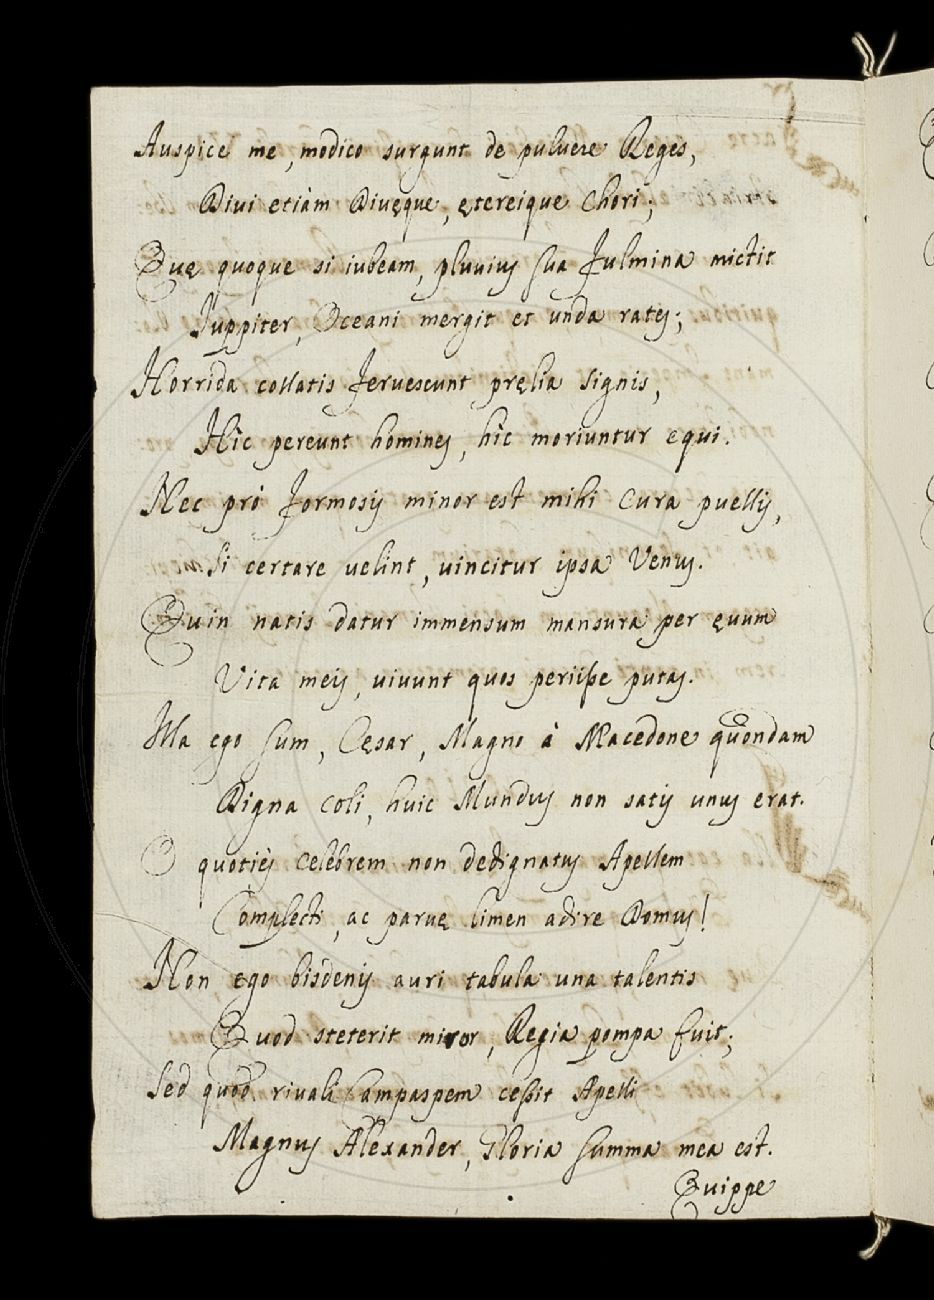 Auspice me, modico surgunt de puluere Reges,
Diui etiàm Diuęque, ętereique Chori;
Quę quoque si iubeam, pluuius sua fulmina mictit
Iuppiter, Oceani mergit et unda rates;
Horrida collatis feruescunt pręlia signis,
Hìc pereunt homines, hìc moriuntur equi.
Nec prò formosis minor est mihi cura puellis,
Si certare uelint, uincitur ipsa Venus.
Quin natis datur immensum mansura per ęuum
Vita meis, uiuunt quos periisse putas.
Illa ego sum, Cęsar, Magno à Macedone quondam
Digna coli, huic Mundus non satis unus erat.
O quotiès celebrem non dedignatus Apellem
Complecti, ac paruę limen adire Domus!
Non ego bisdenis auri tabula una talentis
Quod steterit miror, Regia pompa fuit;
Sed quod riuali Campaspem cessit Apelli
Magnus Alexander, Gloria summa mea est.
Quippe